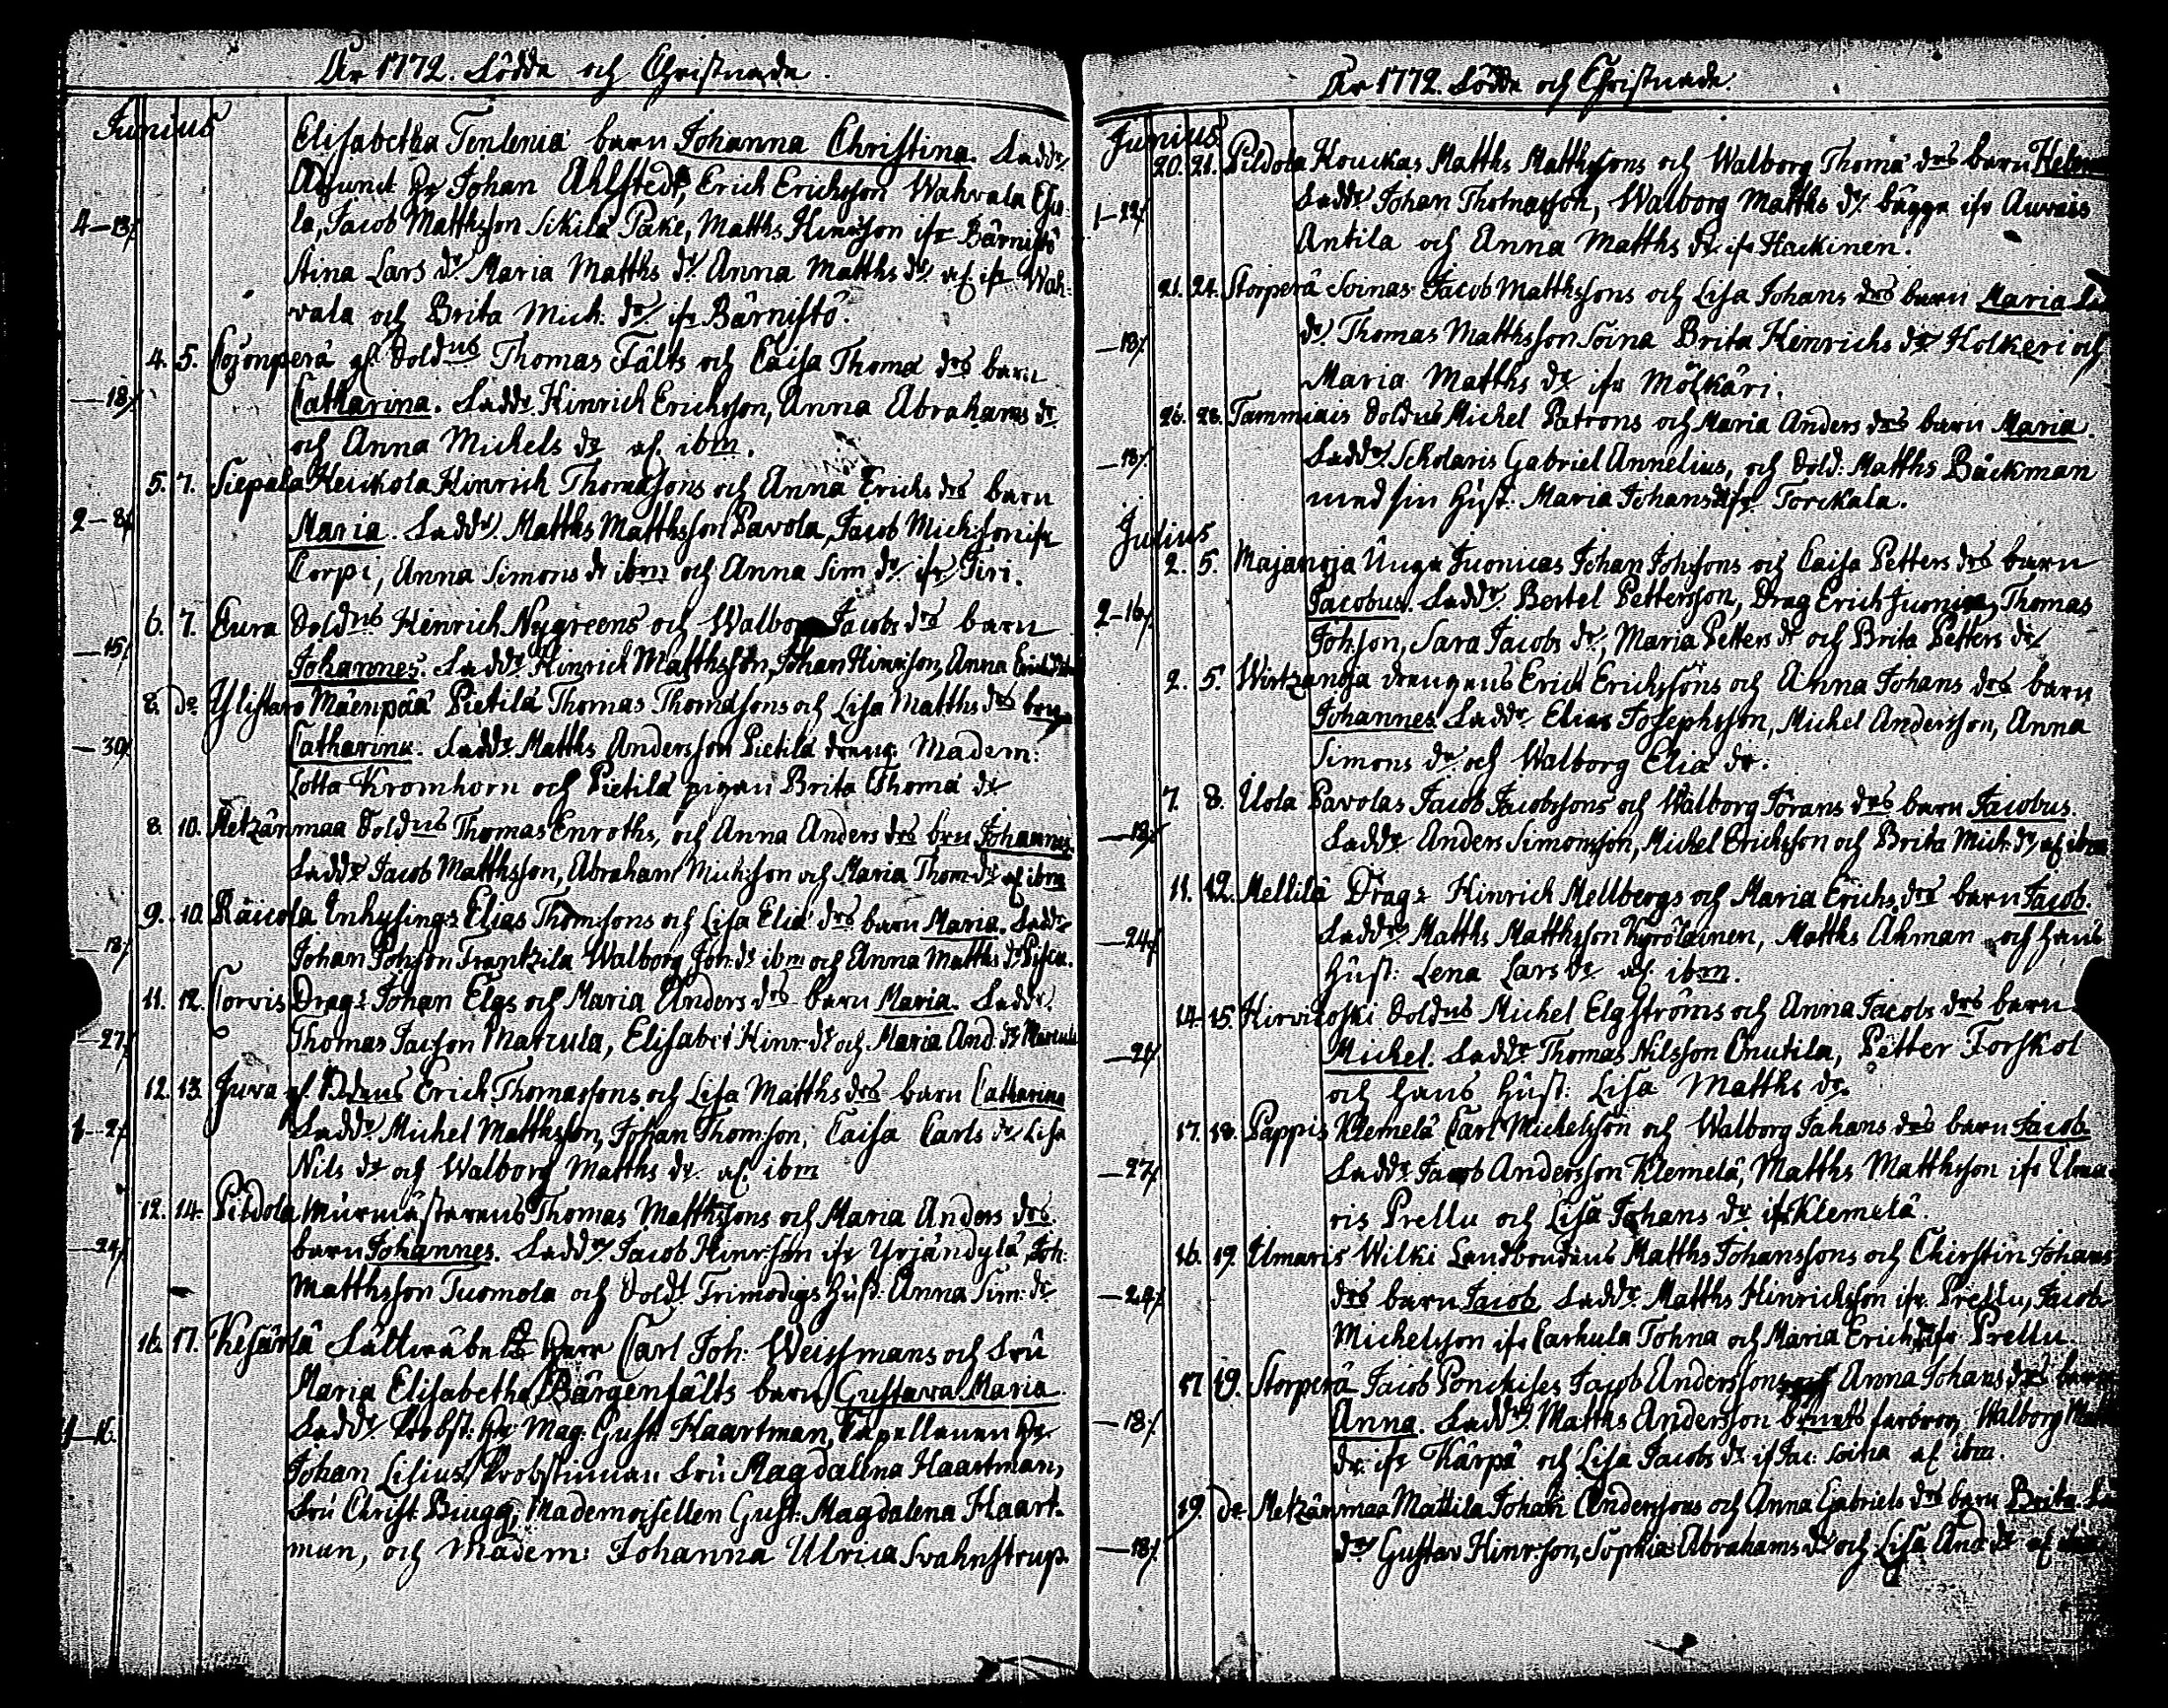 År 1772. Födde och Christnade.
Junius
Elisabetha Tenlenia barn Johanna Christina. Fadd:
Adjunct: Hr Johan Ahlstedt, Erich Ericksson Wahvala
4—13/. la, Jacob Matthsson Sikilä Pake, Matths Hinrsson ifr Bärnistö
Stina Lars dr Maria Matths dr Anna Matths dr af ifr Wah-
vala och Brita Mich: dr ifr Bärnistö.
4. 5. Cojonperä afl. Sold:us Thomas Fälts och Caisa Thoma drs barn
—18/ Catharina. Fadd: Hinrich Ericksson, Anna Abrahams dr
och Anna Michels dr af ibm.
5. 7. Siepala Heickola Hinrich Thomassons och Anna Erichs drs barn
2—8/. Maria. Fadd: Matths Matthsson Pavola, Jacob Mich:son ifr
Corpi, Anna Simons dr ibm och Anna Sim dr ifr Tiri.
6. 7. Eura Sold:us Hinrich Nygreens och Walborg Jacobs drs barn
—15/ Johannes. Fadd: Hinrich Matthsson, Johan Hinrsson, Anna
8. do Ylistaro Mäenpää Pietilä Thomas Thomassons och Lisa Matths drs
—30/. Catharina. Fadd: Matths Andersson Pietilä dreng Madem:
Lotta Kromhorn och Pietilä pigan Brita Thoma dr
8. 10. Metzänmaa Sold:us Thomas Enroths, och Anna Anders drs brn Johannes.
Fadd: Jacob Matthsson, Abraham Mich:son och Maria Thom dr af ibm
9. 10. Räicola Inhysing: Elias Thom:sons och Lisa Eliæ drs barn Maria. Fadd:
—18/ Johan Johsson Frantzila Walborg Joh: dr ibm och Anna Matths dr
11. 12. Corvis Drag: Johan Elgs och Maria Anders drs barn Maria. Fadd:
—27/. Thomas Jacson Matzula, Elisabet Hinr: dr och Maria And: dr
12. 13. Juva afl. Erich Thomassons och Lisa Matths drs barn Catharina
1—2/. Fadd: Michel Matthsson, Johan Thom:son, Caisa Carls dr Lisa
Nils dr och Walborg Matths dr af ibm
12. 14. Pildola Murmästarens Thomas Matthssons och Maria Anders drs
—24/. barn Johannes. Fadd: Jacob Hinr:son ifr Yrjändylä, Joh:
Matthsson Tuomola och Sold: Trimodigs Hust: Anna Sim: dr
16. 17. Kesärlä Fältwäbeln Herr Carl Joh: Weissmans och Fru
Maria Elisabetha Bärgenfälts barn Gustava Maria.
1—16. Fadd: Probst: Hr Mag: Gust: Haartman, Capellanen Hr
Johan Lilius, Probstinnan Fru Magdalena Haartman,
Fru Christ: Biugg, Mademoisellen Gust: Magdalena Haart-
man, och Madem: Johanna Ulrica Svahnstrup.
År 1772. Födde och Christnade.
Junius
20. 21. Pildola Kouckas Matths Matthssons och Walborg Thoma drs barn
1—22/. Fadd: Johan Thomasson, Walborg Matths dr bägge ifr Auvais
Antila och Anna Matths dr ifr Hackinen.
21. 24. Storperä Soinas Jacob Matthssons och Lisa Johans drs barn Maria
—18/. dr Thomas Matthsson Soina Brita Heinrichs dr Holkeri och
Maria Matths dr ifr Mölkäri.
26. 28. Tammiais Sold:us Michel Patrons och Maria Anders drs barn Maria.
—18/. Fadd: Scholaris Gabriel Annelius, och Sold: Matths Bäckman
med sin Hust: Maria Johans dr ifr Torckala.
Julius
2. 5. Majanoja Unga Juonicas Johan Johssons och Caisa Petters drs barn
2—16/. Jacobus. Fadd: Bertel Pettersson, Drag Erich Juonica, Thomas
Johsson, Sara Jacobs dr, Maria Petters dr och Brita Petters dr
2. 5. Wirtzanoja drengens Erich Erichssons och Anna Johans drs barn
Johannes. Fadd: Elias Josephsson, Michel Andersson, Anna
Simons dr och Walborg Eliæ dr.
7. 8. Uola Pavolas Jacob Jacobssons och Walborg Jörans drs barn Jacobus.
—18/. Fadd: Anders Simonsson, Michel Ericksson och Brita Mich: dr af ibm
11. 12. Mellilä Drag: Hinrich Mellbergs och Maria Erichs drs barn Jacob.
—24/. Fadd: Matths Matthsson Kyrölainen, Matths Åhman och hans
Hust: Lena Lars dr af ibm.
14. 15. Hirvicoski Sold:us Michel Elgströms och Anna Jacobs drs barn
—24/ Michel. Fadd: Thomas Nilsson Cnutila, Petter Forskol
och hans Hust: Lisa Matths dr.
17. 18. Pappis Klemelä Carl Michelsson och Walborg Johans drs barn Jacob
—27/. Fadd: Jacob Andersson Klemelä, Matths Matthsson ifr Ilma-
ris Prellu och Lisa Johans dr ifr Klemelä.
16. 19. Ilmaris Wilki Landbondens Matths Johanssons och Chirstin Johans
—24/. drs barn Jacob. Fadd: Matths Hinricksson ifr Prellu, Jacob
Michelsson ifr Carhula Tohna och Maria Erich dr ifr Prellu.
17. 19. Storperä Jacob Ponckises Jacob Anderssons och Anna Johans drs barn
—18/. Anna. Fadd: Matths Andersson barnets farbror, Walborg
dr ifr Kärpä och Lisa Jacobs dr if Jac: Soina af ibm.
19. do Metzänmaa Mattila Johan Anderssons och Anna Gabriels drs barn Brita.
—18/. dr Gustav Hinr:son, Sophia Abrahams dr och Lisa And: dr af